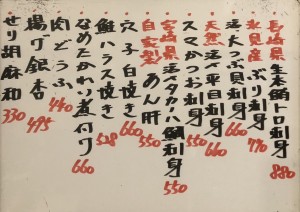 長崎県 生本鮪トロ刺身 880
氷見産 ぶり刺身 770
活大つぶ貝刺身 660
天然活〆平目刺身 660
スマかつお刺身 550
宮崎県 活〆タカハ鯛刺身 550
自家製 あん肝 550
穴子白焼き 660
鮭ハラス焼き 528
なめたかれい煮付け 660
肉どうふ 440
揚げ銀杏 495
せり胡麻和 330